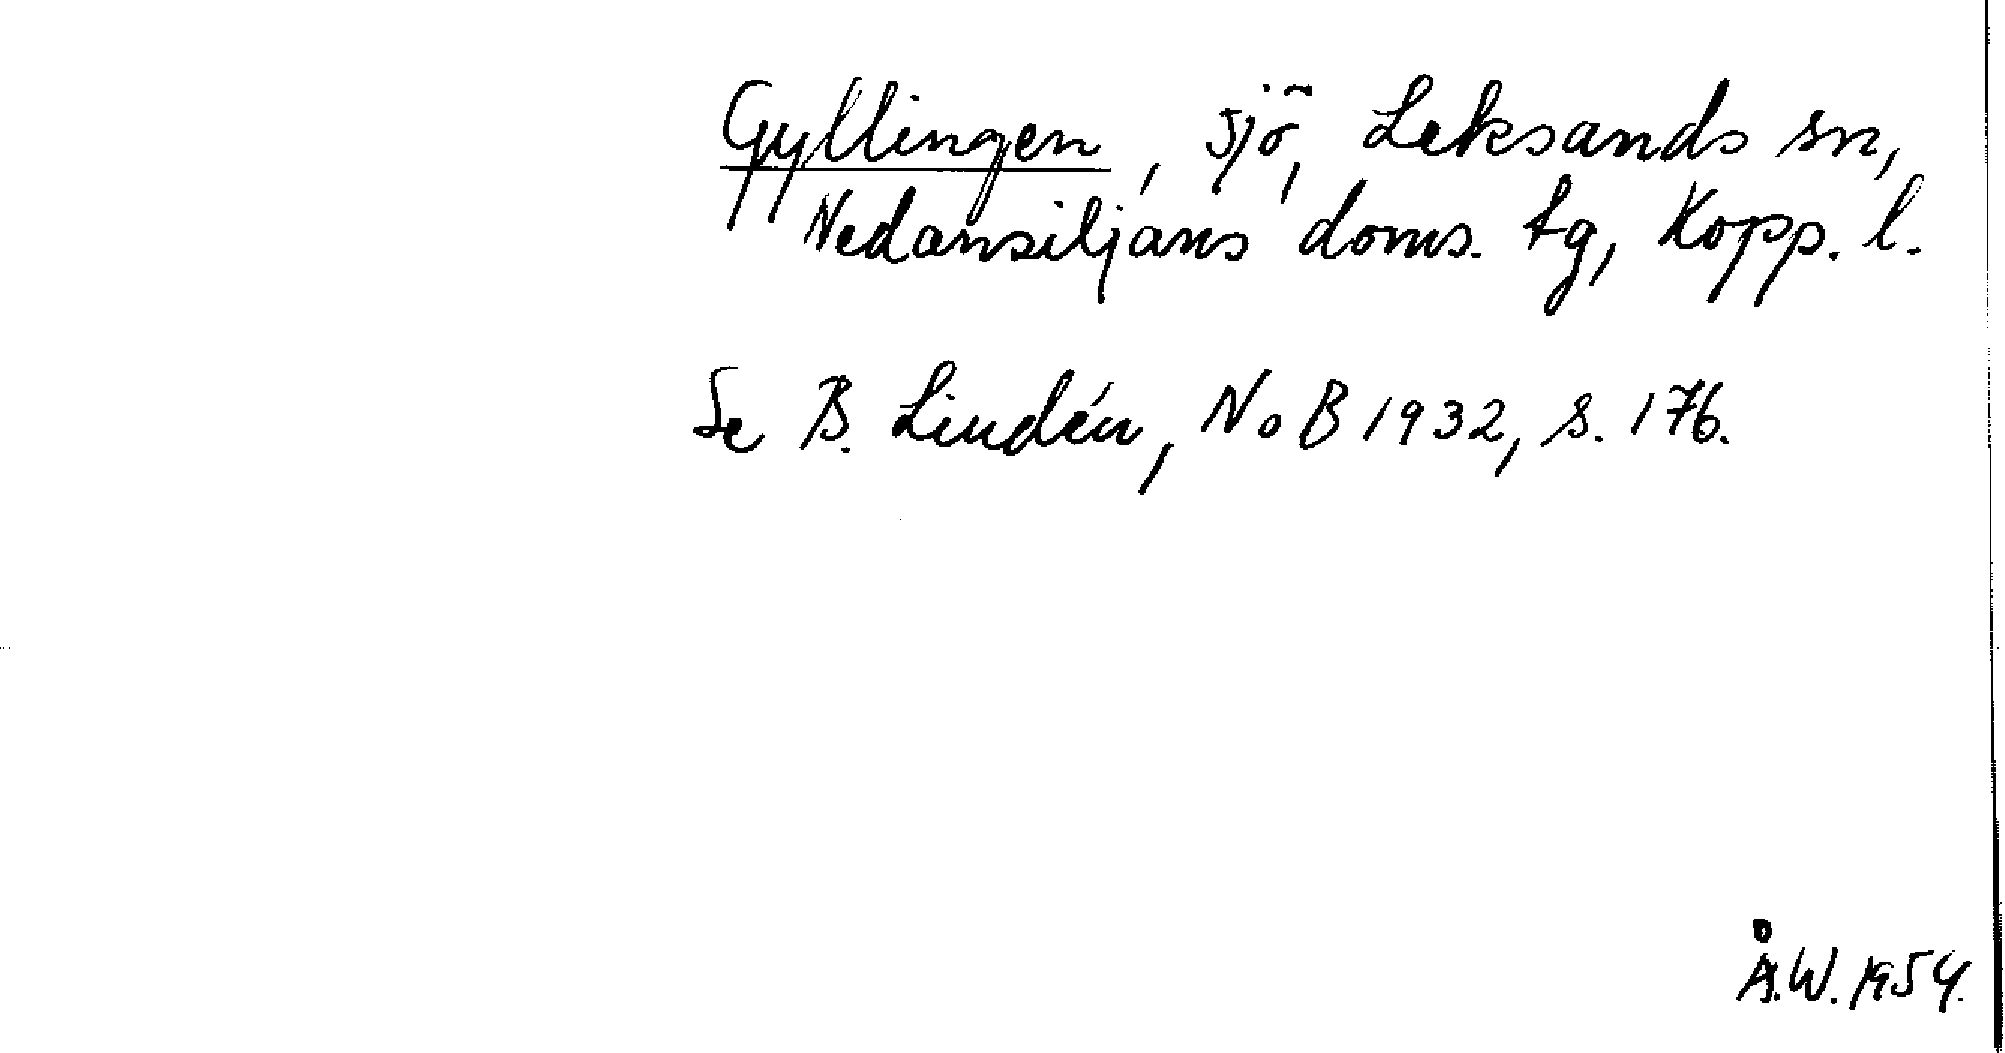 Gyllingen, sjö, Leksands sn,
Nedansiljans doms. tg, Kopp. l.
Se B. Lindén, NoB 1932, s. 176.
Å.W. 1954.